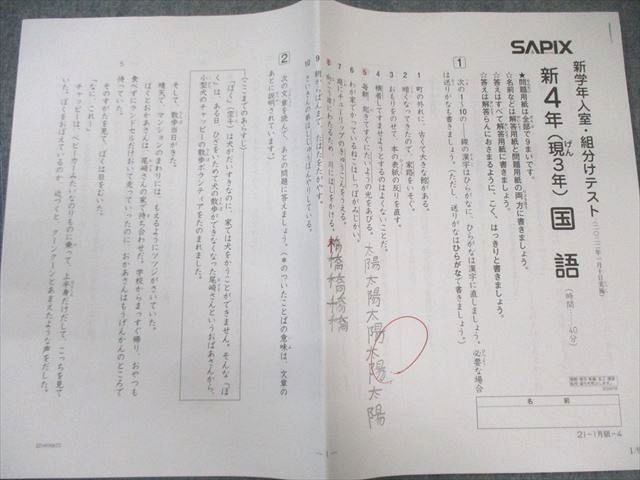 SAPIX
新学年入室・組分けテスト
新4年(現3年) 国語
げん
(時間……40分)
★問題用紙は全部で9まいです。
☆名前などは解答用紙と問題用紙の両方に書きましょう。
☆答えはすべて解答用紙に書きましょう。
☆答えは解答らんにおさまるように、こく、はっきりと書きましょう。
名前
21-1月組-4
1 次の1～10の——線の漢字はひらがなに、ひらがなは漢字に直しましょう。必要な場合
は送りがなも書きましょう。(ただし、送りがなはひらがなで書きましょう。)
1 町の外れに、古くて大きな館がある。
2 暗くなってきたので、家路をいそぐ。
3 おもりをのせて、本の表紙の反りを直す。
4 横着してすませようとするのはよくないことだ。
5 わが家でかっているねこはしっぽがみじかい。
6 毎朝、起きてすぐにたいようの光をあびる。
太陽太陽太陽太陽太陽
7
8 向こう岸にわたるため、川にはしをかける。
橋橋橋橋橋
9 朝からばんまで、はたけをたがやす。
10
2 次の文章を読んで、あとの問題に答えましょう。(*のついたことばの意味は、文章の
あとに説明されています。)
(ここまでのあらすじ)
「ぼく」(空斗)は犬がだいすきなのに、家では犬をかうことができません。そんな「ぼ
く」は、ある日、ひざをいためて犬の散歩ができなくなった尾崎さんというおばあさんから、
小型犬のチャッピーの散歩ボランティアをたのまれました。
そして、散歩当日がきた。
晴天で、マンションのまわりには、もえるようにツツジがさいていた。
ぼくとおかあさんは、尾崎さんの家で待ち合わせた。学校からまっすぐ帰り、おやつも
食べずにランドセルだけおいて走っていったのに、おかあさんはもうげんかんのところで
5 待っていた。
そのすがたを見て、ぼくは目をむいた。
「なに、これ?」
チャッピーは、ベビーカーみたいなのりものに乗って、上半身だけだして、こっちを見て
いた。ぼくをおぼえているのか、近づくと、クーンクーンとあまえたような声をだした。
-1-